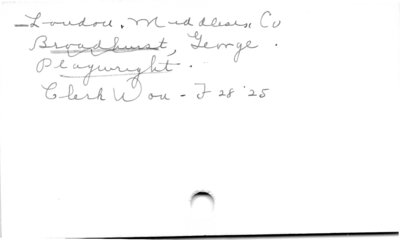 London, Middlesex Co
Broadhurst, George.
Playwright.
Clerk W on - F 28 '25